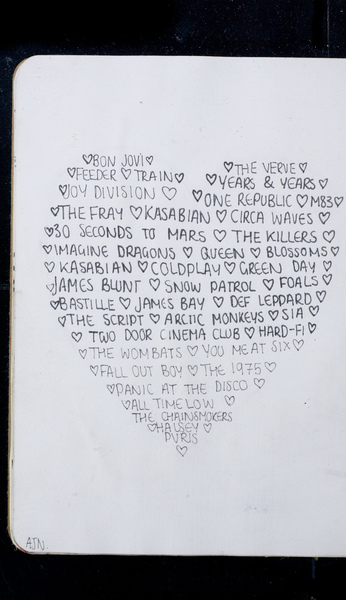 ♡BON JOVI♡
♡THE VERVE♡
♡FEEDER♡TRAIN♡
♡YEARS & YEARS♡
♡JOY DIVISION♡
♡ONE REPUBLIC♡M83♡
♡THE FRAY♡KASABIAN♡CIRCA WAVES♡
♡30 SECONDS TO MARS♡THE KILLERS♡
♡IMAGINE DRAGONS♡QUEEN♡BLOSSOMS♡
♡KASABIAN♡COLDPLAY♡GREEN DAY♡
♡JAMES BLUNT♡SNOW PATROL♡FOALS♡
♡BASTILLE♡JAMES BAY♡DEF LEPPARD♡
♡THE SCRIPT♡ARCTIC MONKEYS♡SIA♡
♡TWO DOOR CINEMA CLUB♡HARD-FI♡
♡THE WOMBATS♡YOU MEAT SIX♡
♡FALL OUT BOY♡THE 1975♡
♡PANIC AT THE DISCO♡
♡ALL TIME LOW♡
THE CHAINSMOKERS
♡HALSEY♡
PVRIS
♡
AJN.